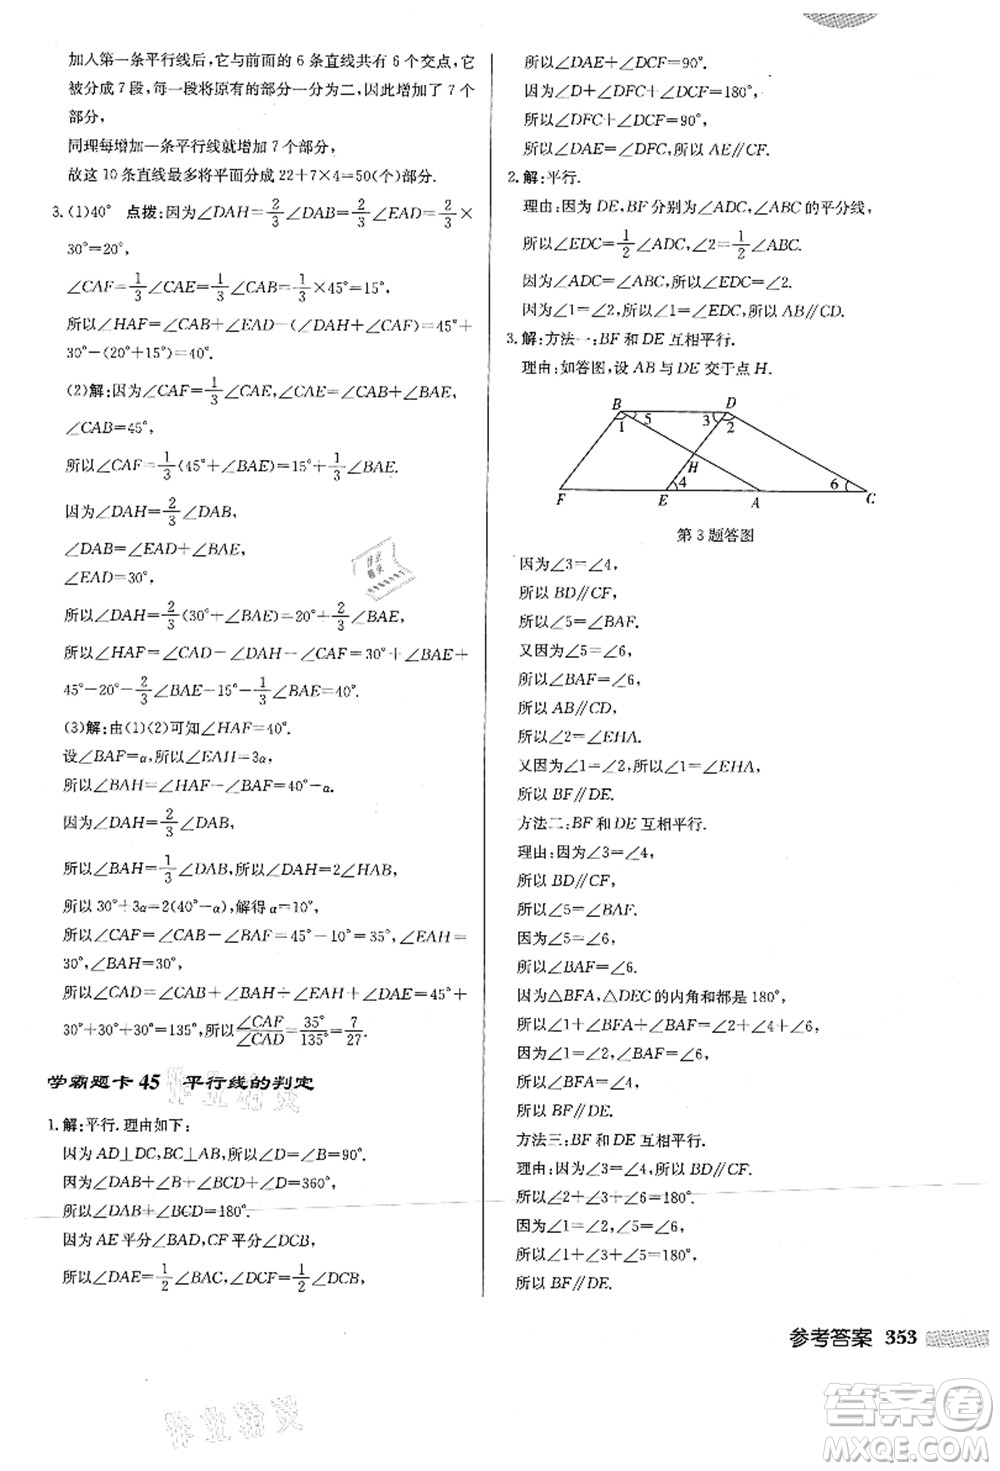 加入第一条平行线后,它与前面的 6 条直线共有 6 个交点,它
被分成 7 段,每一段将原有的部分一分为二,因此增加了 7 个
部分,
同理每增加一条平行线就增加 7 个部分,
故这 10 条直线最多将平面分成 22+7×4=50(个)部分.
3. (1)40° 点拨:因为∠DAH=2/3∠DAB=2/3∠EAD=2/3×
30°=20°,
∠CAF=1/3∠CAE=1/3∠CAB=1/3×45°=15°,
所以∠HAF=∠CAB+∠EAD-(∠DAH+∠CAF)=45°+
30°-(20°+15°)=40°.
(2)解:因为∠CAF=1/3∠CAE,∠CAE=∠CAB+∠BAE,
∠CAB=45°,
所以∠CAF=1/3(45°+∠BAE)=15°+1/3∠BAE.
因为∠DAH=2/3∠DAB,
∠DAB=∠EAD+∠BAE,
∠EAD=30°,
所以∠DAH=2/3(30°+∠BAE)=20°+2/3∠BAE,
所以∠HAF=∠CAD-∠DAH-∠CAF=30°+∠BAE+
45°-20°-2/3∠BAE-15°-1/3∠BAE=40°.
(3)解:由(1)(2)可知∠HAF=40°.
设∠BAF=α,所以∠EAH=3α,
所以∠BAH=∠HAF-∠BAF=40°-α.
因为∠DAH=2/3∠DAB,
所以∠BAH=1/3∠DAB,所以∠DAH=2∠HAB,
所以 30°+3α=2(40°-α),解得 α=10°,
所以∠CAF=∠CAB-∠BAF=45°-10°=35°,∠EAH=
30°,∠BAH=30°,
所以∠CAD=∠CAB+∠BAH+∠EAH+∠DAE=45°+
30°+30°+30°=135°,所以∠CAF/∠CAD=35°/135°=7/27.
学霸题卡 45 平行线的判定
1. 解:平行.理由如下:
因为 AD⊥DC,BC⊥AB,所以∠D=∠B=90°.
因为∠DAB+∠B+∠BCD+∠D=360°,
所以∠DAB+∠BCD=180°.
因为 AE 平分∠BAD,CF 平分∠DCB,
所以∠DAE=1/2∠BAC,∠DCF=1/2∠DCB,
所以∠DAE+∠DCF=90°.
因为∠D+∠DFC+∠DCF=180°,
所以∠DFC+∠DCF=90°,
所以∠DAE=∠DFC,所以 AE∥CF.
2. 解:平行.
理由:因为 DE,BF 分别为∠ADC,∠ABC 的平分线,
所以∠EDC=1/2∠ADC,∠2=1/2∠ABC.
因为∠ADC=∠ABC,所以∠EDC=∠2.
因为∠1=∠2,所以∠1=∠EDC,所以 AB∥CD.
3. 解:方法一:BF 和 DE 互相平行.
理由:如答图,设 AB 与 DE 交于点 H.
B D
1 5 3 2
H
4 6
F E A C
第 3 题答图
因为∠3=∠4,
所以 BD∥CF,
所以∠5=∠BAF.
又因为∠5=∠6,
所以∠BAF=∠6,
所以 AB∥CD,
所以∠2=∠EHA.
又因为∠1=∠2,所以∠1=∠EHA,
所以 BF∥DE.
方法二:BF 和 DE 互相平行.
理由:因为∠3=∠4,
所以 BD∥CF,
所以∠5=∠BAF.
因为∠5=∠6,
所以∠BAF=∠6.
因为△BFA,△DEC 的内角和都是 180°,
所以∠1+∠BFA+∠BAF=∠2+∠4+∠6.
因为∠1=∠2,∠BAF=∠6,
所以∠BFA=∠4,
所以 BF∥DE.
方法三:BF 和 DE 互相平行.
理由:因为∠3=∠4,所以 BD∥CF.
所以∠2+∠3+∠6=180°.
因为∠1=∠2,∠5=∠6,
所以∠1+∠3+∠5=180°,
所以 BF∥DE.
参考答案 353
作业精灵
答案卷
MXQE.COM